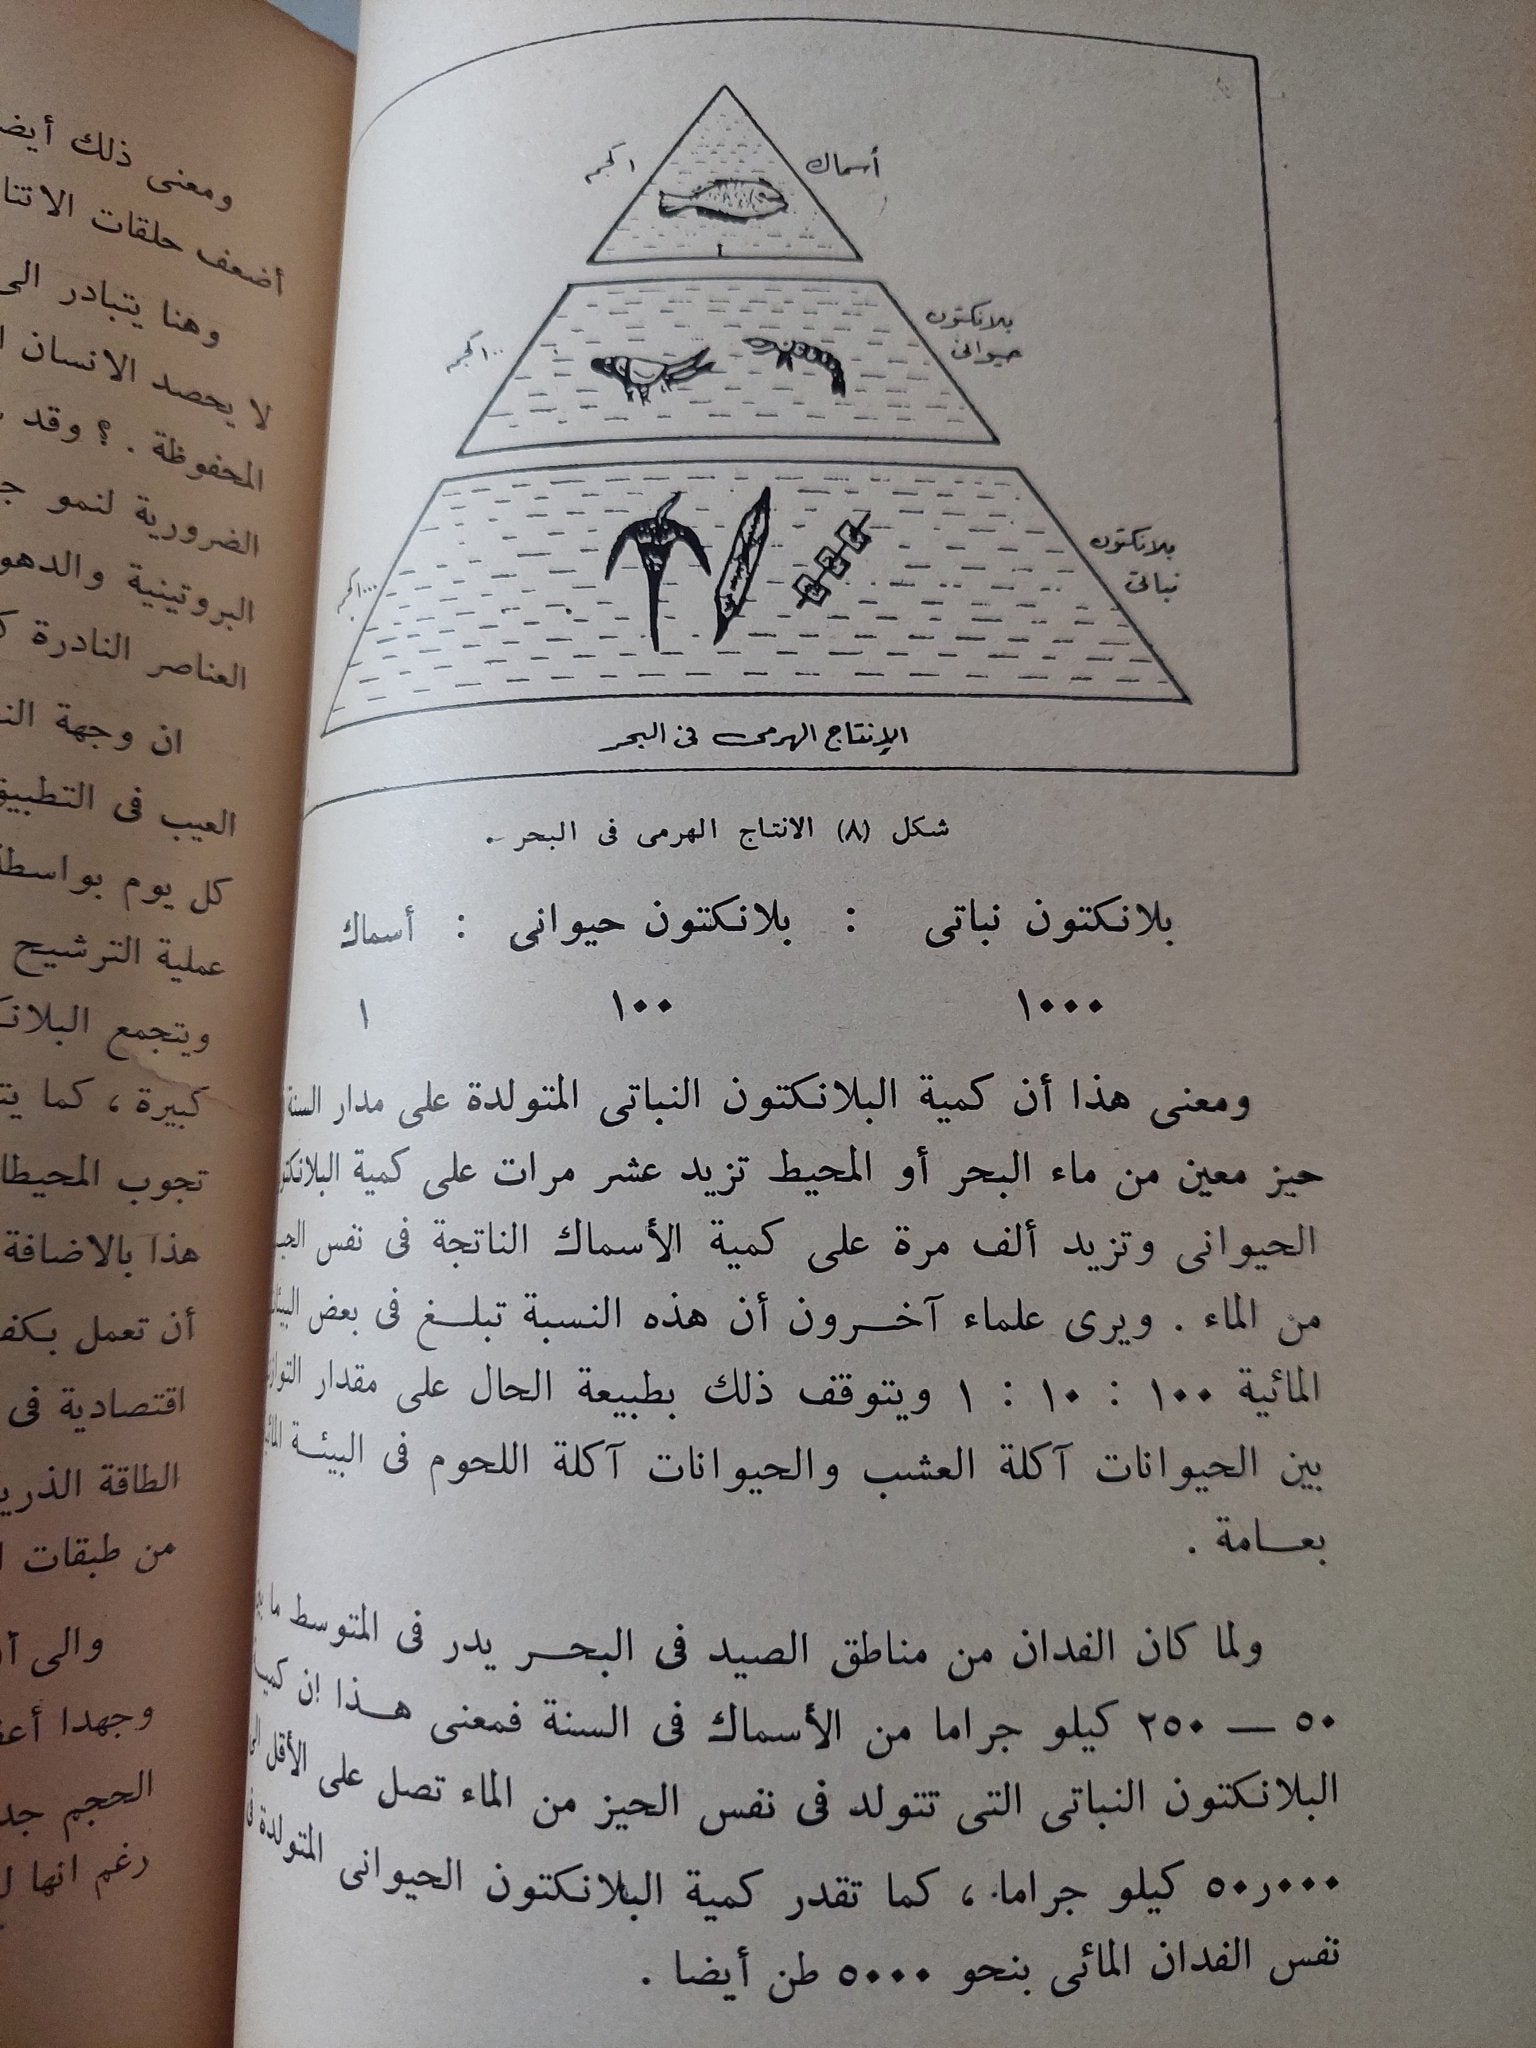 أسماك
١ كجم
١
بلانكتون
حيوانى
١٠٠ كجم
بلانكتون
نباتى
١٠٠٠ كجم
الإنتاج الهرمى فى البحر
شكل (٨) الانتاج الهرمى فى البحر .
بلانكتون نباتى : بلانكتون حيوانى : أسماك
١٠٠٠ ١٠٠ ١
ومعنى هذا أن كمية البلانكتون النباتى المتولدة على مدار السنة
حيز معين من ماء البحر أو المحيط تزيد عشر مرات على كمية
الحيوانى وتزيد ألف مرة على كمية الأسماك الناتجة فى نفس
من الماء . ويرى علماء آخرون أن هذه النسبة تبلغ فى بعض
المائية ١٠٠ : ١٠ : ١ ويتوقف ذلك بطبيعة الحال على مقدار
بين الحيوانات آكلة العشب والحيوانات آكلة اللحوم فى البيئة
بعامة .
ولما كان الفدان من مناطق الصيد فى البحر يدر فى المتوسط ما
٥٠ — ٢٥٠ كيلو جراما من الأسماك فى السنة فمعنى هذا ان
البلانكتون النباتى التى تتولد فى نفس الحيز من الماء تصل على الأقل
٥٠ر٠٠٠ كيلو جراما ، كما تقدر كمية البلانكتون الحيوانى المتولدة
نفس الفدان المائى بنحو ٥٠٠٠ طن أيضا .
ومعنى ذلك
أضعف حلقات
وهنا يتبادر الى
لا يحصد الانسان
المحفوظة . ؟ وقد
الضرورية لنمو
البروتينية
العناصر النادرة
ان وجهة
العيب فى
كل يوم
عملية الترشيح
ويتجمع
كبيرة ، كما
تجوب
هذا بالاضافة
أن تعمل
اقتصادية فى
الطاقة
من طبقات
والى
وجهدا
الحجم
رغم انها